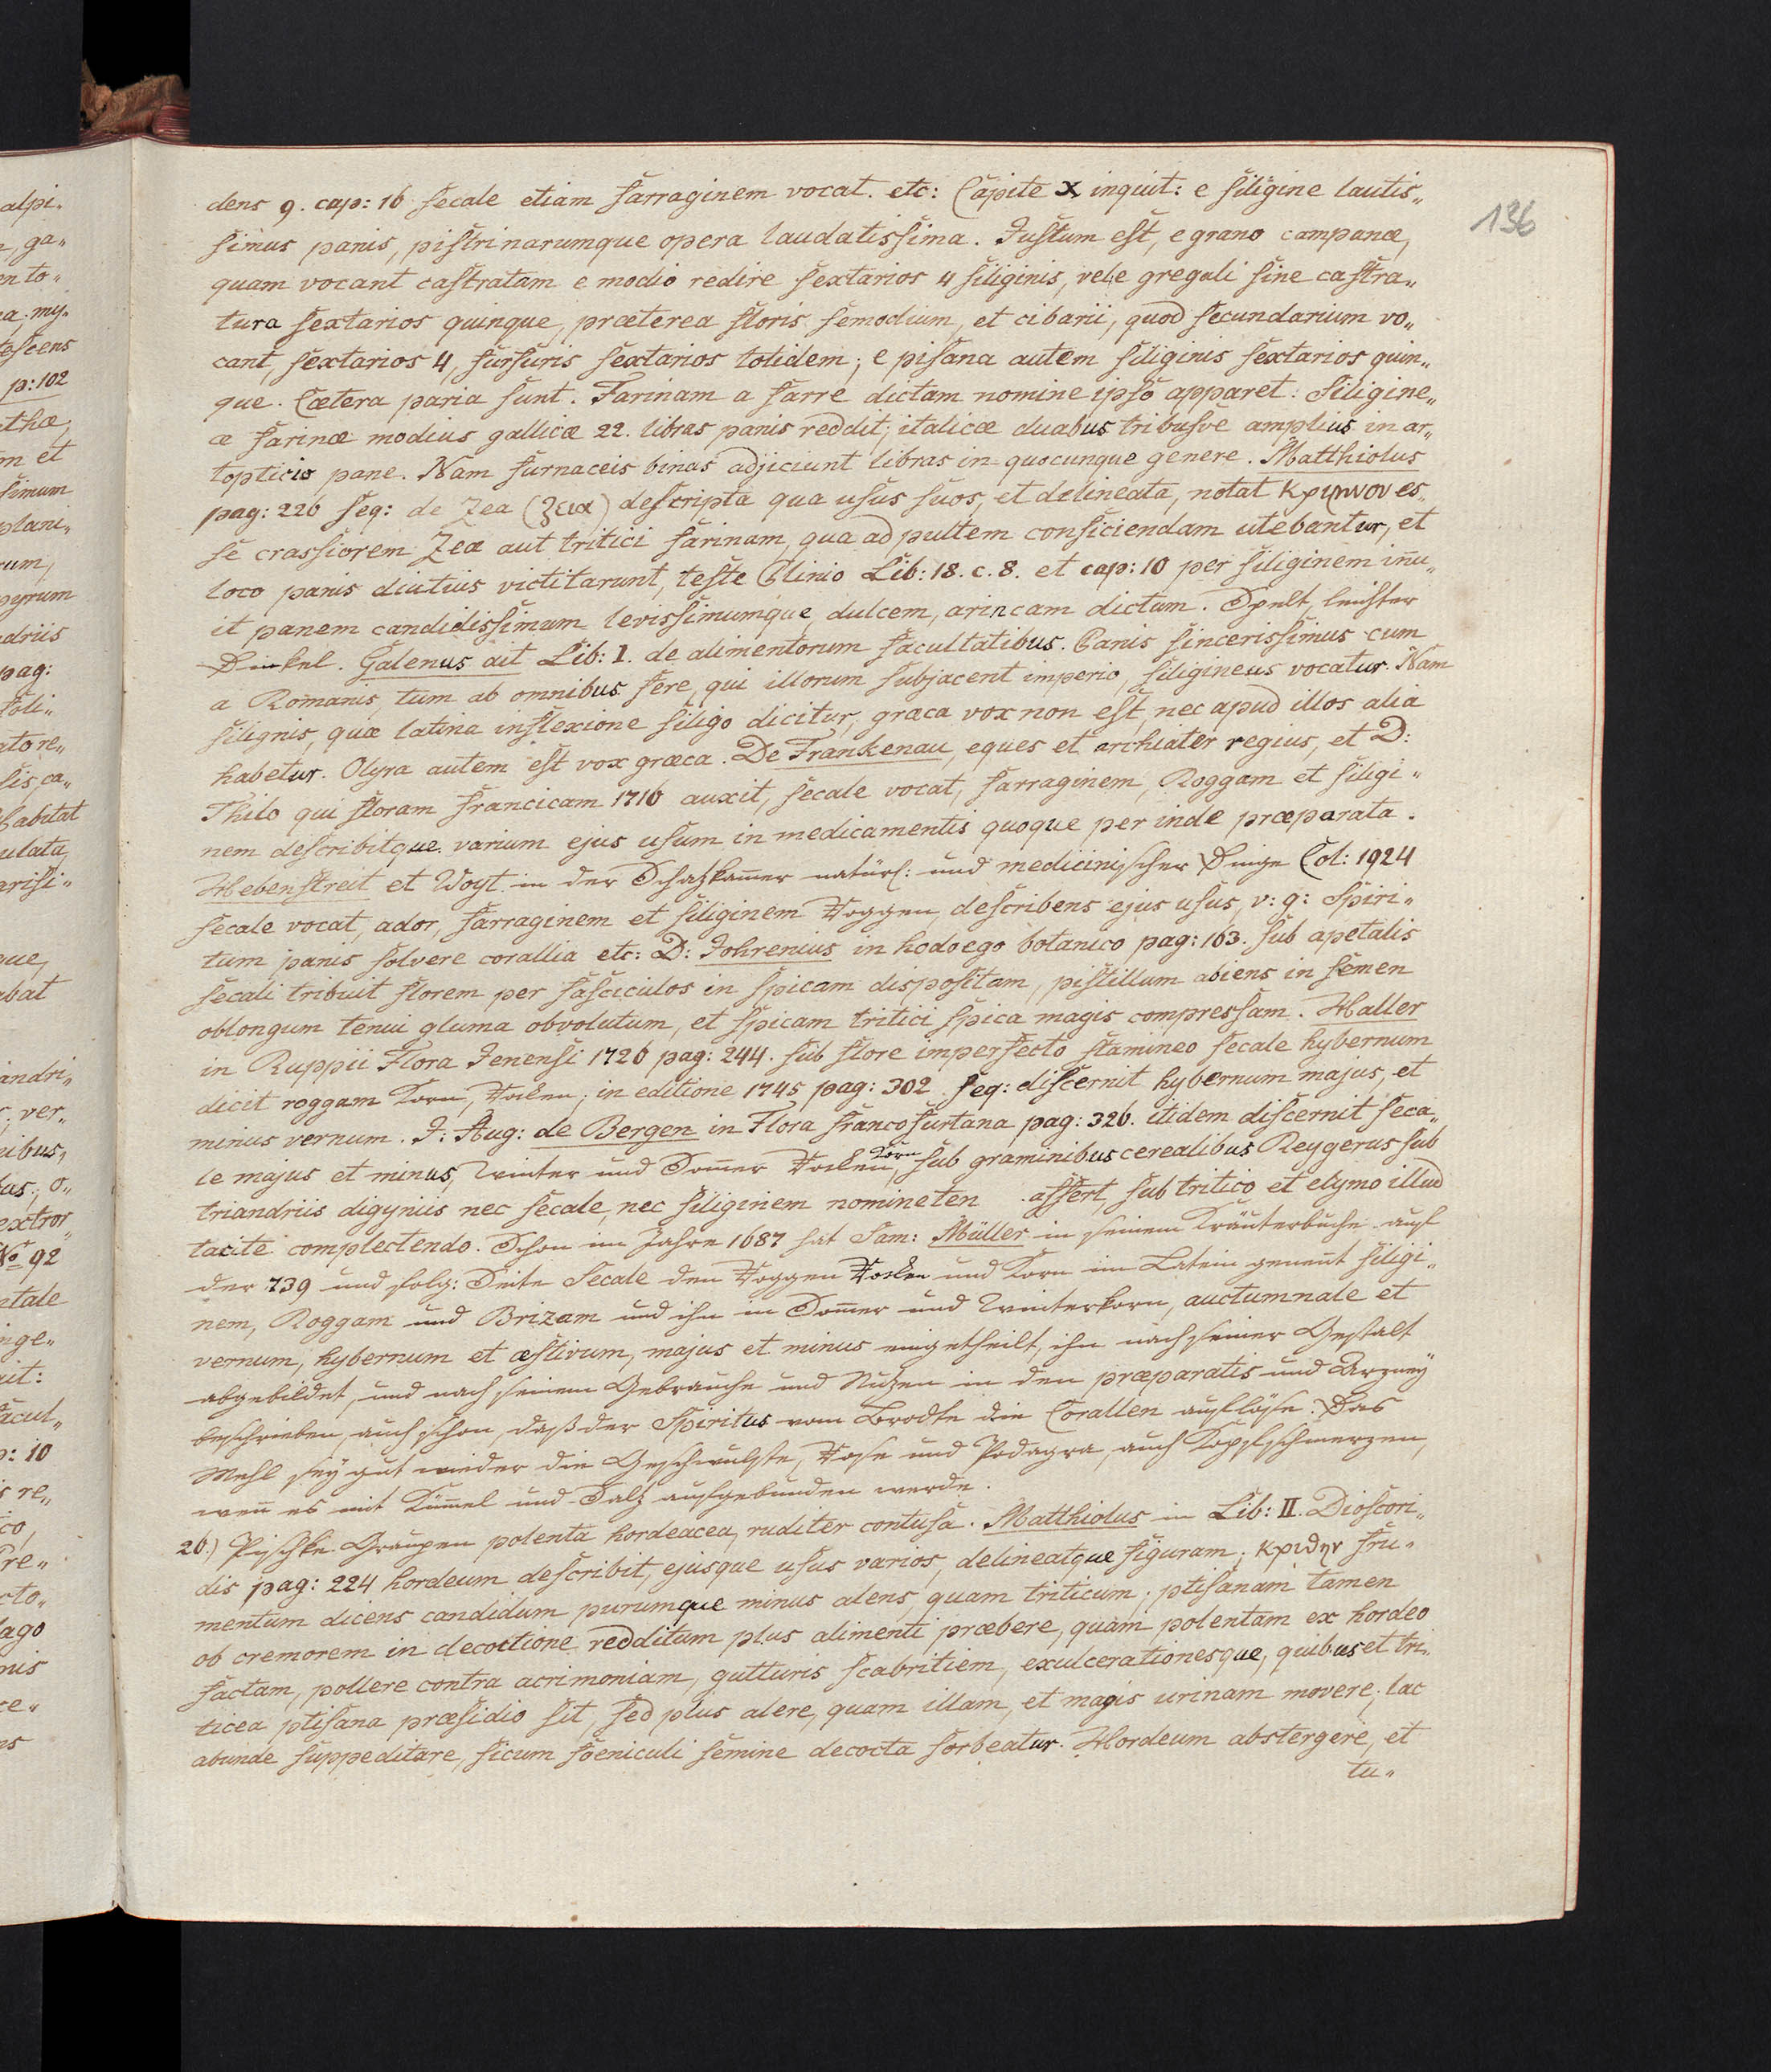 136
dens 9. cap: 16 secale etiam farraginem vocat. etc: Capite X inquit: e siligine lautis„
simus panis, pistrinarumque opera laudatissima. Justum est, e grano campanæ,
quam vocant castratam e modio redire sextarios 4 siliginis, vel e gregali sine castra„
tura sextarios quinque, præterea floris semodium, et cibarii, quod secundarium vo„
cant, sextarios 4, furfuris sextarios totidem; e pisana autem siliginis sextarios quin„
que. Cætera paria sunt. Farinam a farre dictam nomine ipso apparet: Siligine„
æ farinæ modius gallicæ 22. libras panis reddit; italicæ duabus tribusve amplius in ar„
topticio pane. Nam furnaceis binas adjiciunt libras in quocunque genere. Matthiolus
pag: 226 seq: de Zea (ζεια) descripta qua usus suos, et delineata, notat κριμνον es„
se crassiorem Zeæ aut tritici farinam, qua ad pultem conficiendam utebantur, et
loco panis diutius victitarunt, teste Plinio Lib: 18. c. 8. et cap: 10 per siliginem inu„
it panem candidissimum levissimumque, dulcem, arincam dictam. Spelt, leichter
Dinkel. Galenus ait Lib: 1. de alimentorum facultatibus. Panis sincerissimus cum
a Romanis, tum ab omnibus fere, qui illorum subjacent imperio, siligineus vocatur. Nam
silignis, quæ latina inflexione siligo dicitur, græca vox non est, nec apud illos alia
habetur. Olyra autem est vox græca. De Frankenau, eques et archiater regius, et D:
Thilo qui floram francicam 1716 auxit, secale vocat, farraginem, Roggam et siligi„
nem describitque varium ejus usum in medicamentis quoque per inde præparata.
Hebenstreit et Woyt in der Schatzkamer natürl: und medicinischer Dinge Col: 1924
secale vocat, ador, farraginem et siliginem Roggen, describens ejus usus, v: g: Spiri„
tum panis solvere corallia etc: D: Johrenius in hodoego botanico pag: 163. sub apetalis
secali tribuit florem per fasciculos in spicam dispositam, pistillum abiens in semen
oblongum tenui gluma obvolutum, et spicam tritici spica magis compressam. Haller
in Ruppii Flora Jenensi 1726 pag: 244. sub flore imperfecto stamineo secale hybernum
dicit roggam Korn, Rocken; in editione 1745 pag: 302. seq: discernit hybernum majus, et
minus vernum. J: Aug: de Bergen in Flora francofurtana pag: 326. itidem discernit seca„
le majus et minus, Winter und Somer Rocken, Korn sub graminibus cerealibus Reygerus sub
triandriis digyniis nec secale, nec siliginem nomineten . affert, sub tritico et elymo illud
tacite complectendo. Schon im Jahre 1687 hat Sam: Müller in seinem Kräuterbuche auf
der 739 und folg: Seite Secale den Roggen Rocken und Korn im Latein genent siligi„
nem, Roggam und Brizam und ihn in Somer und Winterkorn, auctumnale et
vernum, hybernum et æstivum, majus et minus eingetheilt, ihn nach seiner Gestalt
abgebildet, und nach seinem Gebrauche und Nutzen in den præparatis und Arzney
beschrieben, auch schon, daß der Spiritus vom Brodte die Corallen auflöse. Das
Mehl sey gut wieder die Geschwulste, Rose und Podagra, auch Kopfschmerzen,
wen es mit Kümel und Saltz aufgebunden werde.
26.) Pischke Graupen polenta hordeacea, ruditer contusa. Matthiolus in Lib: II. Dioscori„
dis pag: 224 hordeum describit, ejusque usus varios, delineatque figuram; κριθην fru„
mentum dicens candidum purumque minus alens, quam triticum; ptisanam tamen
ob cremorem in decoctione redditum plus alimenti præbere, quam polentam ex hordeo
factam, pollere contra acrimoniam, gutturis scabritiem, exulcerationesque, quibus et tri„
ticea ptisana præsidio sit, sed plus alere, quam illam, et magis urinam movere; lac
abunde suppeditare, sicum fœniculi semine decocta sorbeatur. Hordeum abstergere, et
tu„